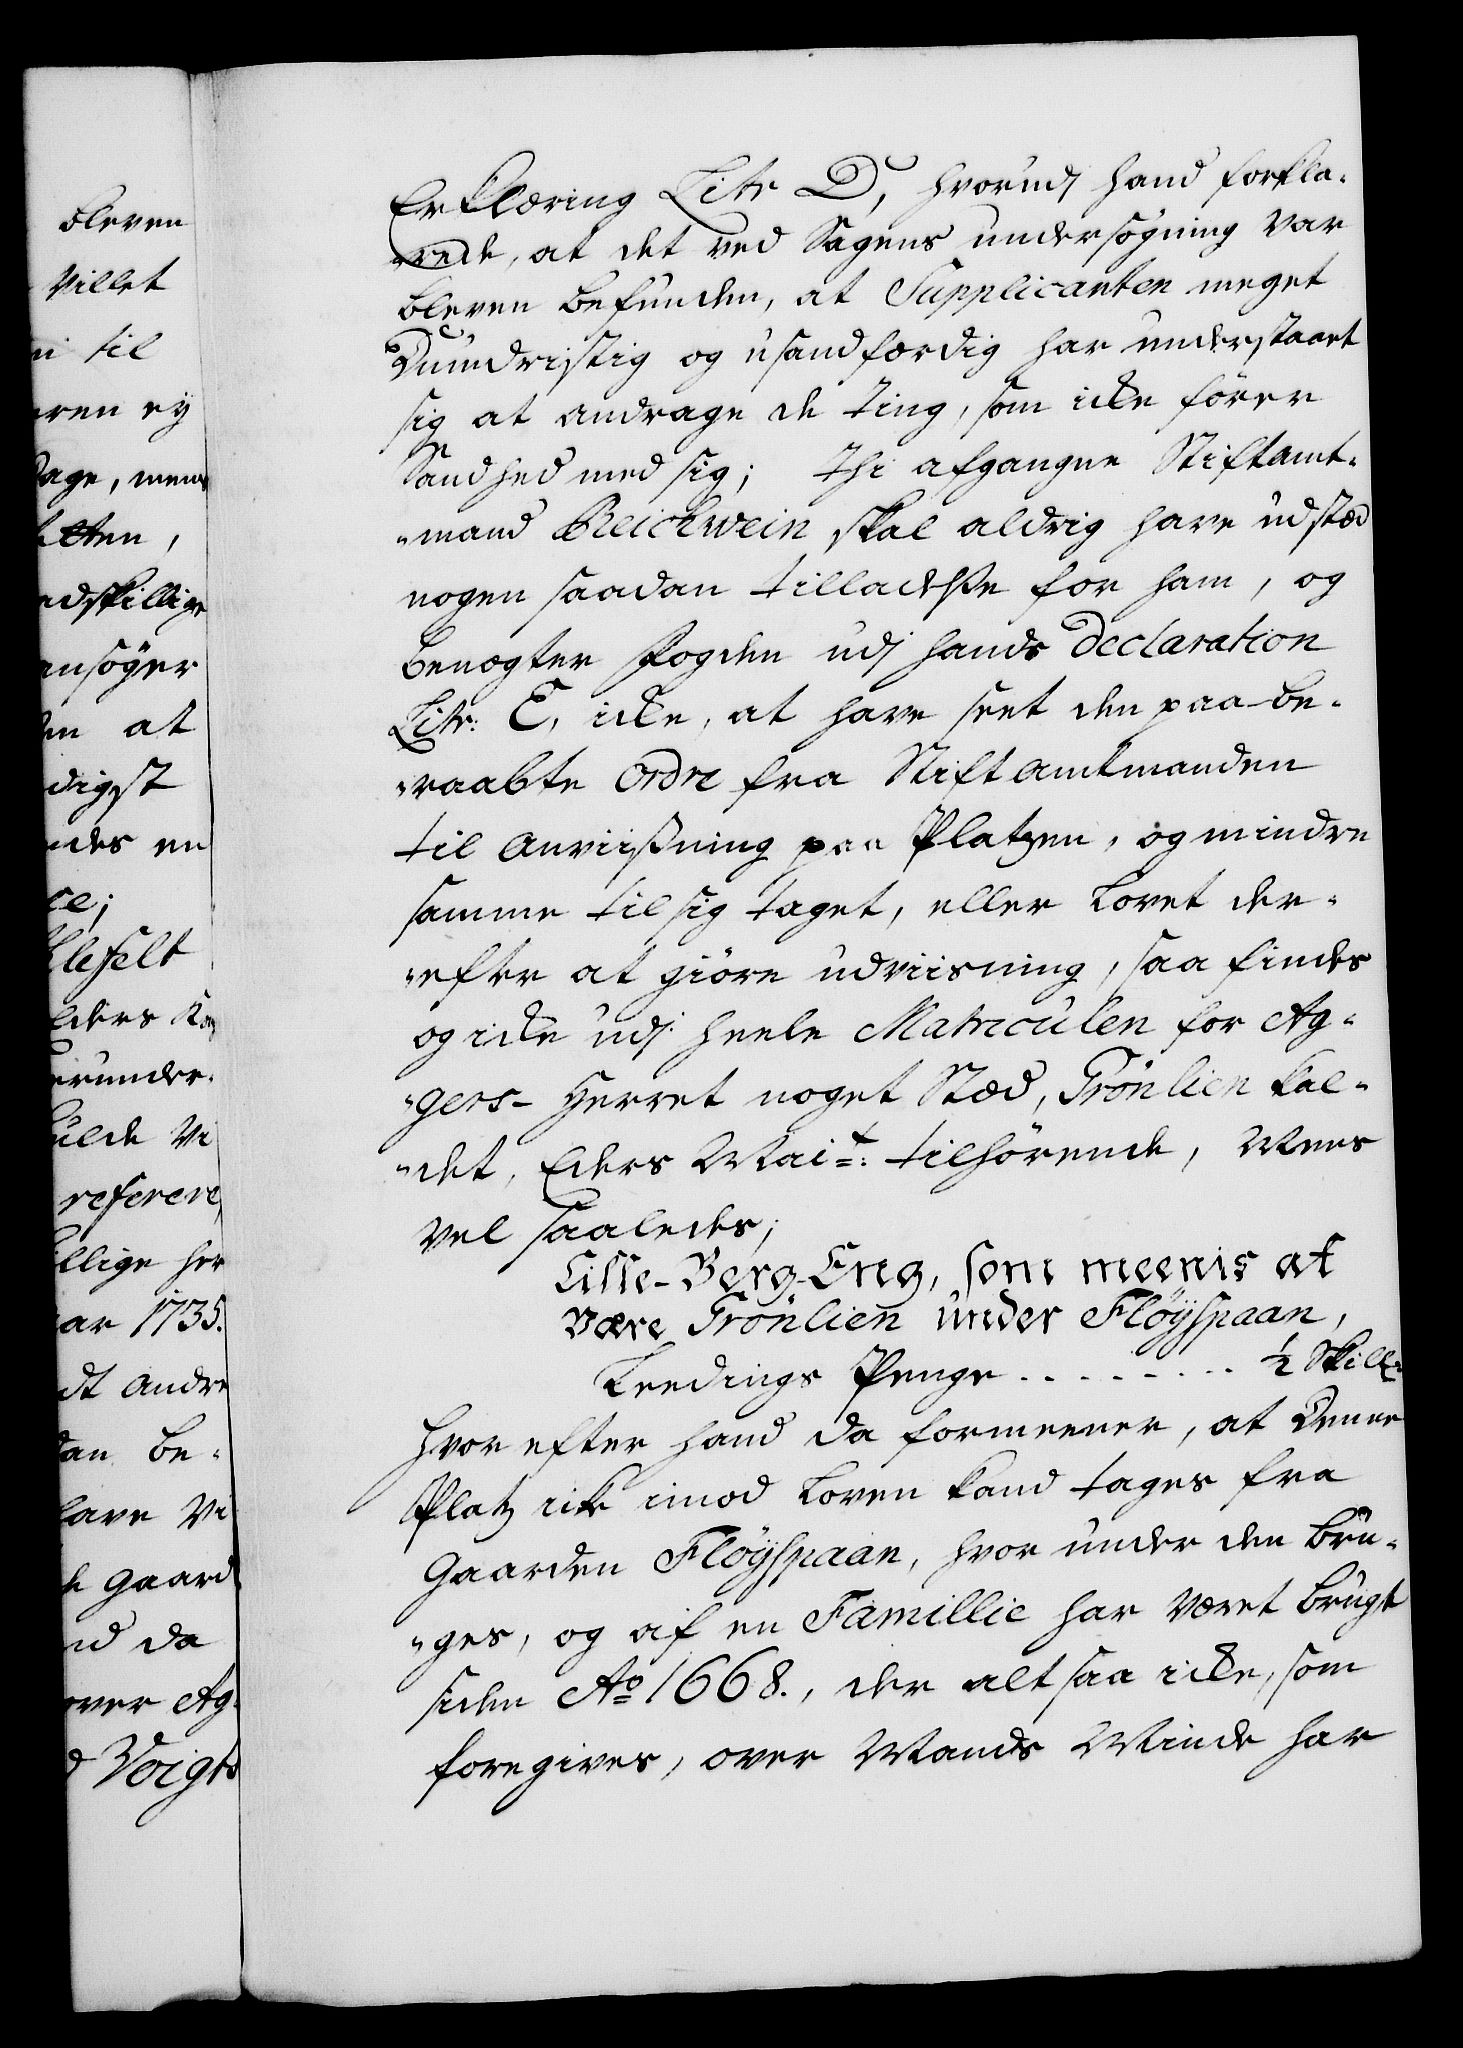 bleven
Villet
til
eren ey
Sage, mens
etten,
adskillige
ansöger
en at
digst
ndes en
ce;
Klefelt
Eders Kong
herunder
skulde Vi
referere,
illige her
aar 1735.
dt andre
dan be-
have Vi
de Gaard
nd da
over Ag-
d Voigts
Erklæring Litr D, hvorudj hand forkla-
rede, at det ved Sagens undersøgning var
bleven befunden, at Supplicanten meget
Dumdristig og usandfærdig har understaaet
sig at andrage de ting, som icke fører
Sandhed med sig; thi afgangne Stiftamt-
mand Reichwein skal aldrig have udstæd
nogen saadan tilladelse for ham, og
benægter Fogden udj hands Declaration
Litr: E, icke, at have seet den paa-be-
raabte Ordre fra Stiftamtmanden
til Anviißning paa Platzen, og mindre
samme til sig taget, eller lovet der-
efter at giöre udviisning, saa findes
og icke udj heele Matriculen for Ag-
gers-Herret noget Stæd, Trönlien kal-
det, Eders Mai.t: tilhörende, Mens
vel saaledes;
Lille-Berg-Eng, som meenis at
Være Trönlien under Flöyspaan,
Leedings Penge . . . . . . . . . ½ Skill:
Hvorefter hand da formeener, at denne
Platz icke imod Loven kand tages fra
Gaarden Flöyspaan, hvor under den bru-
ges, og af en Famillie har været brugt
siden Ao 1668., der altsaa icke, som
foregives, over Mands Minde har